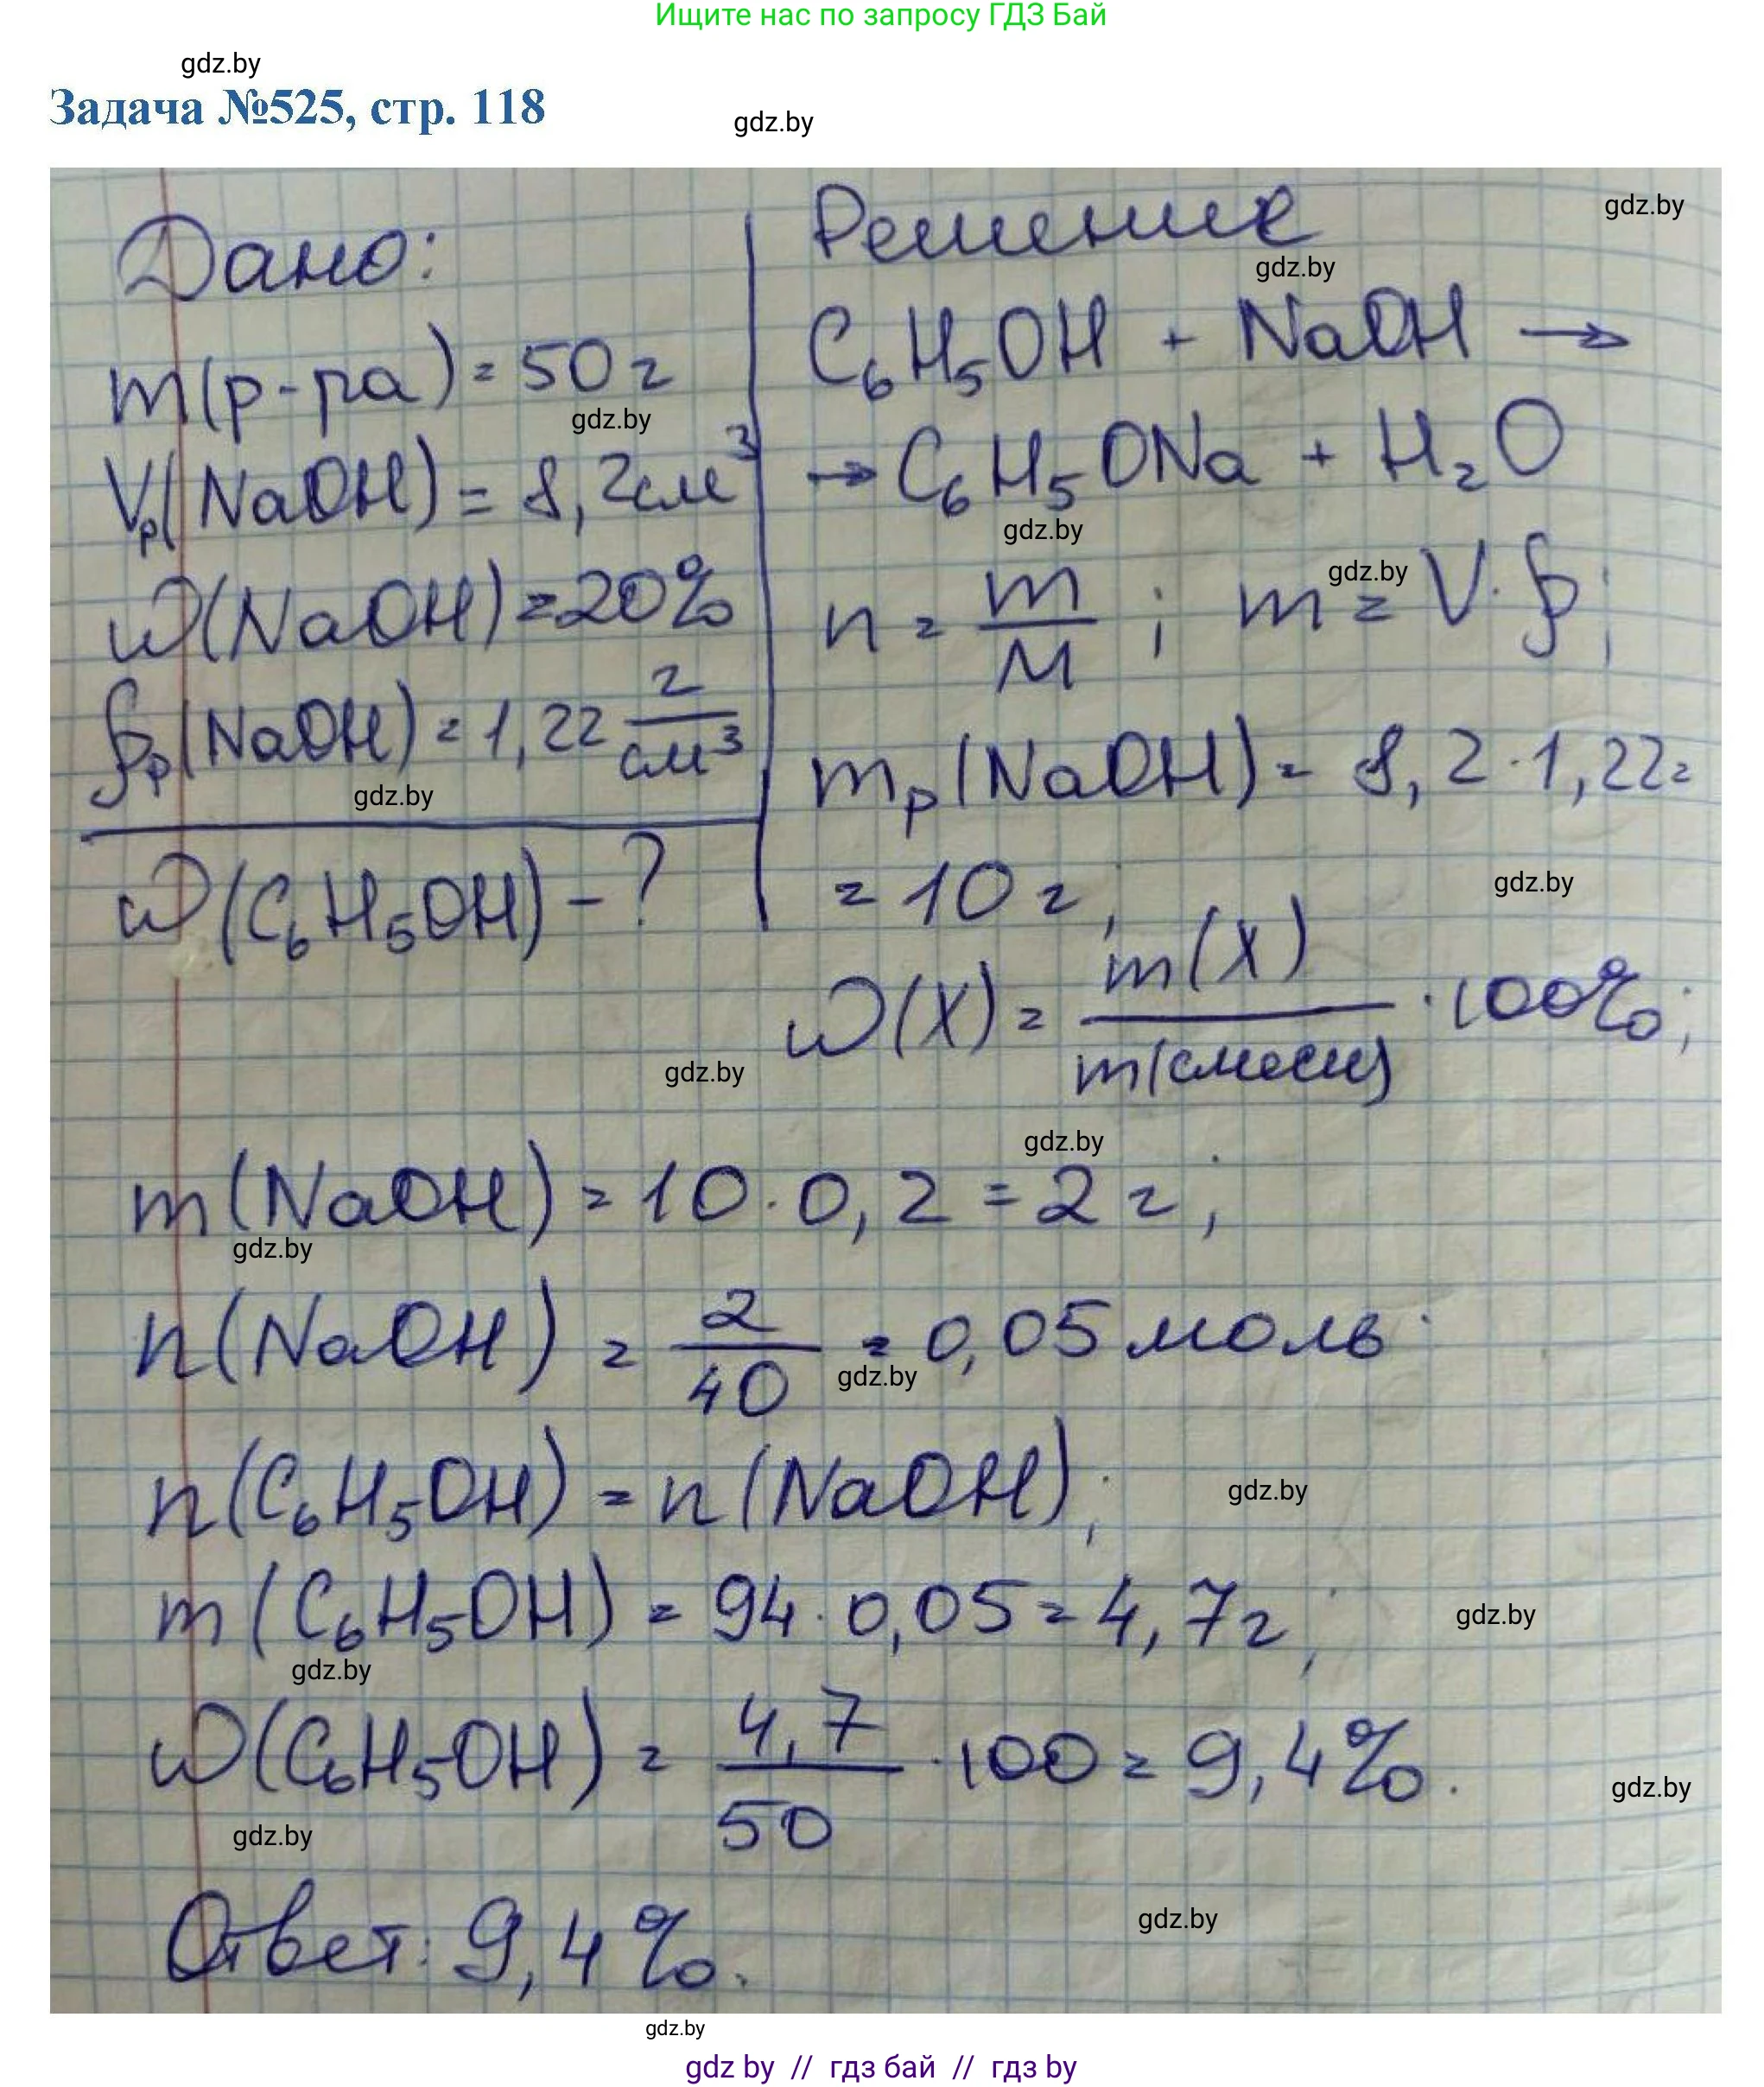 Ищите нас по запросу ГДЗ Бай
gdz.by
Задача №525, стр. 118
gdz.by
Дано:
m(р-ра) = 50 г
gdz.by
Vр(NaOH) = 8,2 см³
ω(NaOH) = 20%
ρр(NaOH) = 1,22 г/см³
gdz.by
ω(C₆H₅OH) - ?
Решение
gdz.by
gdz.by
C₆H₅OH + NaOH →
→ C₆H₅ONa + H₂O
gdz.by
gdz.by
n = m/M ; m = V · ρ;
mр(NaOH) = 8,2 · 1,22 =
= 10 г;
gdz.by
ω(X) = m(X)/m(смеси) · 100%;
gdz.by
gdz.by
m(NaOH) = 10 · 0,2 = 2 г;
gdz.by
n(NaOH) = 2/40 = 0,05 моль
gdz.by
n(C₆H₅OH) = n(NaOH);
gdz.by
m(C₆H₅OH) = 94 · 0,05 = 4,7 г;
gdz.by
gdz.by
ω(C₆H₅OH) = 4,7/50 · 100 = 9,4%.
gdz.by
gdz.by
Ответ: 9,4%.
gdz.by
gdz.by
gdz by // гдз бай // гдз by